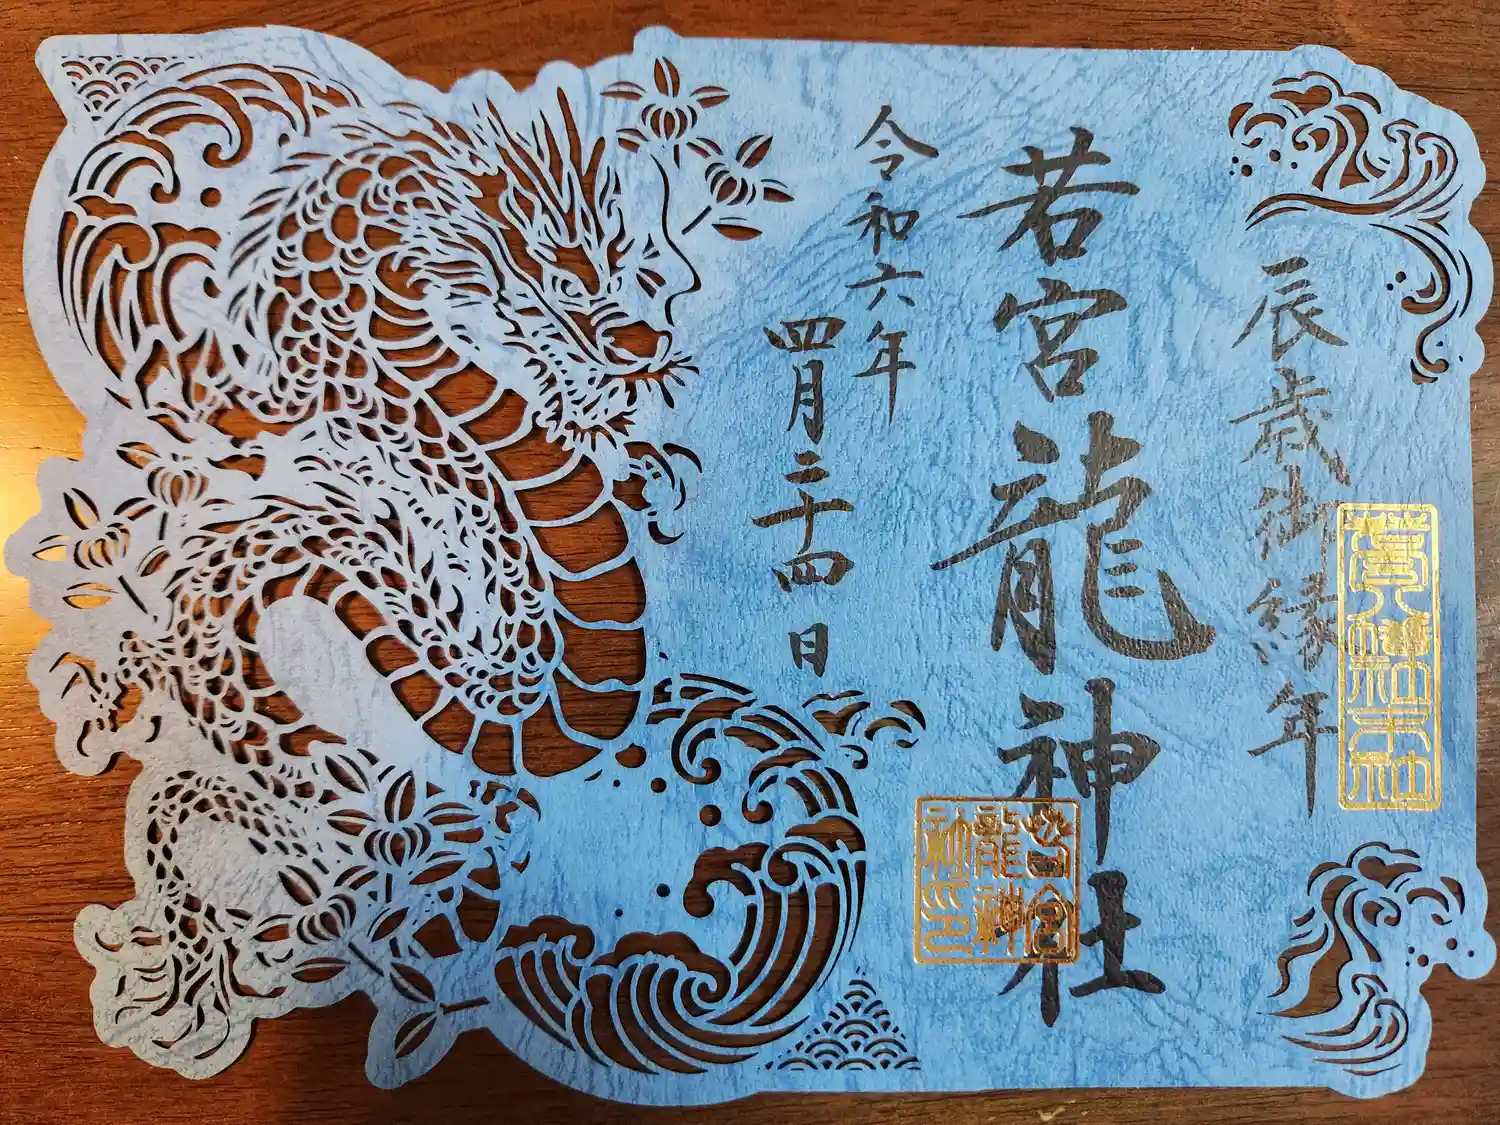 辰歳御縁年
若宮龍神社
若宮
龍神
社印
令和六年
四月二十四日